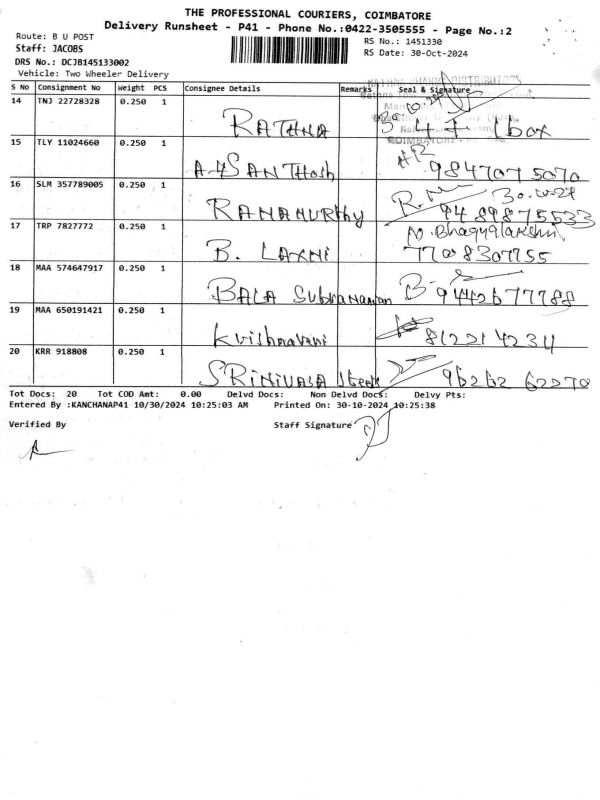 THE PROFESSIONAL COURIERS, COIMBATORE
Delivery Runsheet - P41 - Phone No.:0422-3505555 - Page No.:2
Route: B U POST
RS No.: 1451330
Staff: JACOBS
RS Date: 30-Oct-2024
DRS No.: DCJB145133002
Vehicle: Two Wheeler Delivery
S No Consignment No Weight PCS Consignee Details Remarks Seal & Signature
14 TNJ 22728328 0.250 1
RATHNA
1box
COIMBATORE
15 TLY 11024660 0.250 1
SANTHosh 984707 5070
16 SLM 357789005 0.250 1
RAMAMURthy 94 89875533
17 TRP 7827772 0.250 1
N. Bhagyalakshmi
B. LAXMI 7708307755
18 MAA 574647917 0.250 1
BALA Subramanian 9442677788
19 MAA 650191421 0.250 1
Krishnaveni 812214234
20 KRR 918808 0.250 1
SRINIVASA Steel 96262 62270
Tot Docs: 20 Tot COD Amt: 0.00 Delvd Docs: Non Delvd Docs: Delvy Pts:
Entered By :KANCHANAP41 10/30/2024 10:25:03 AM Printed On: 30-10-2024 10:25:38
Verified By Staff Signature